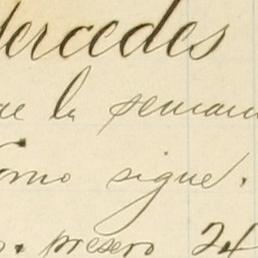 Mercedes
de la seman
como sigue.
presero 24